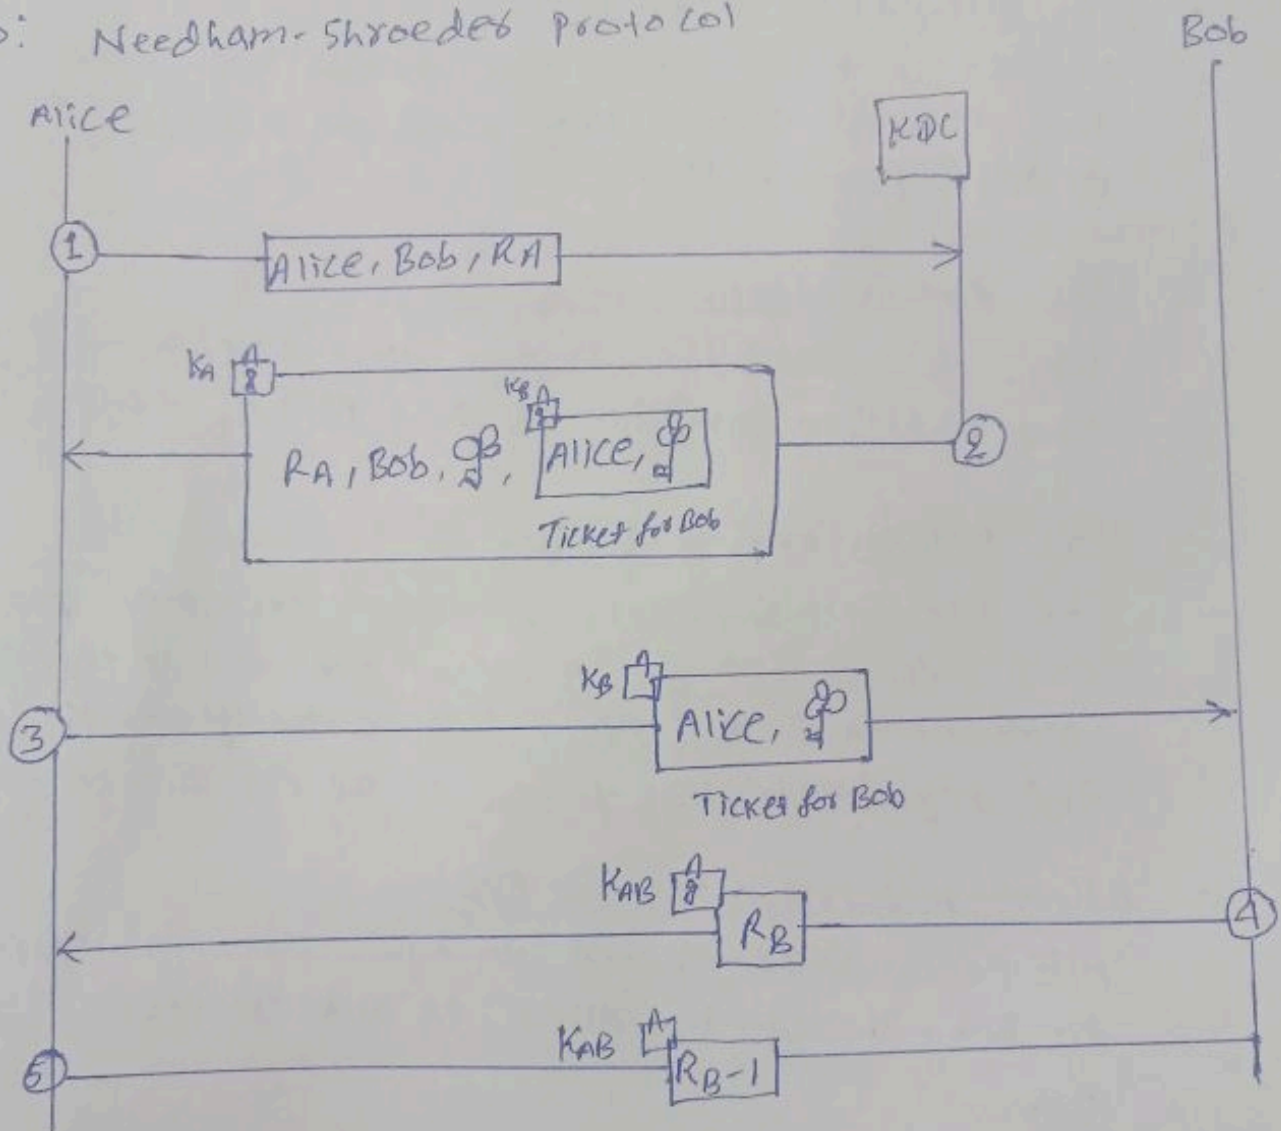 : Needham-Shroeder protocol
Bob
Alice
KDC
1
Alice, Bob, RA
KA
KB
RA, Bob, , Alice,
2
Ticket for Bob
KB
3
Alice,
Ticket for Bob
KAB
RB
4
KAB
5
RB-1